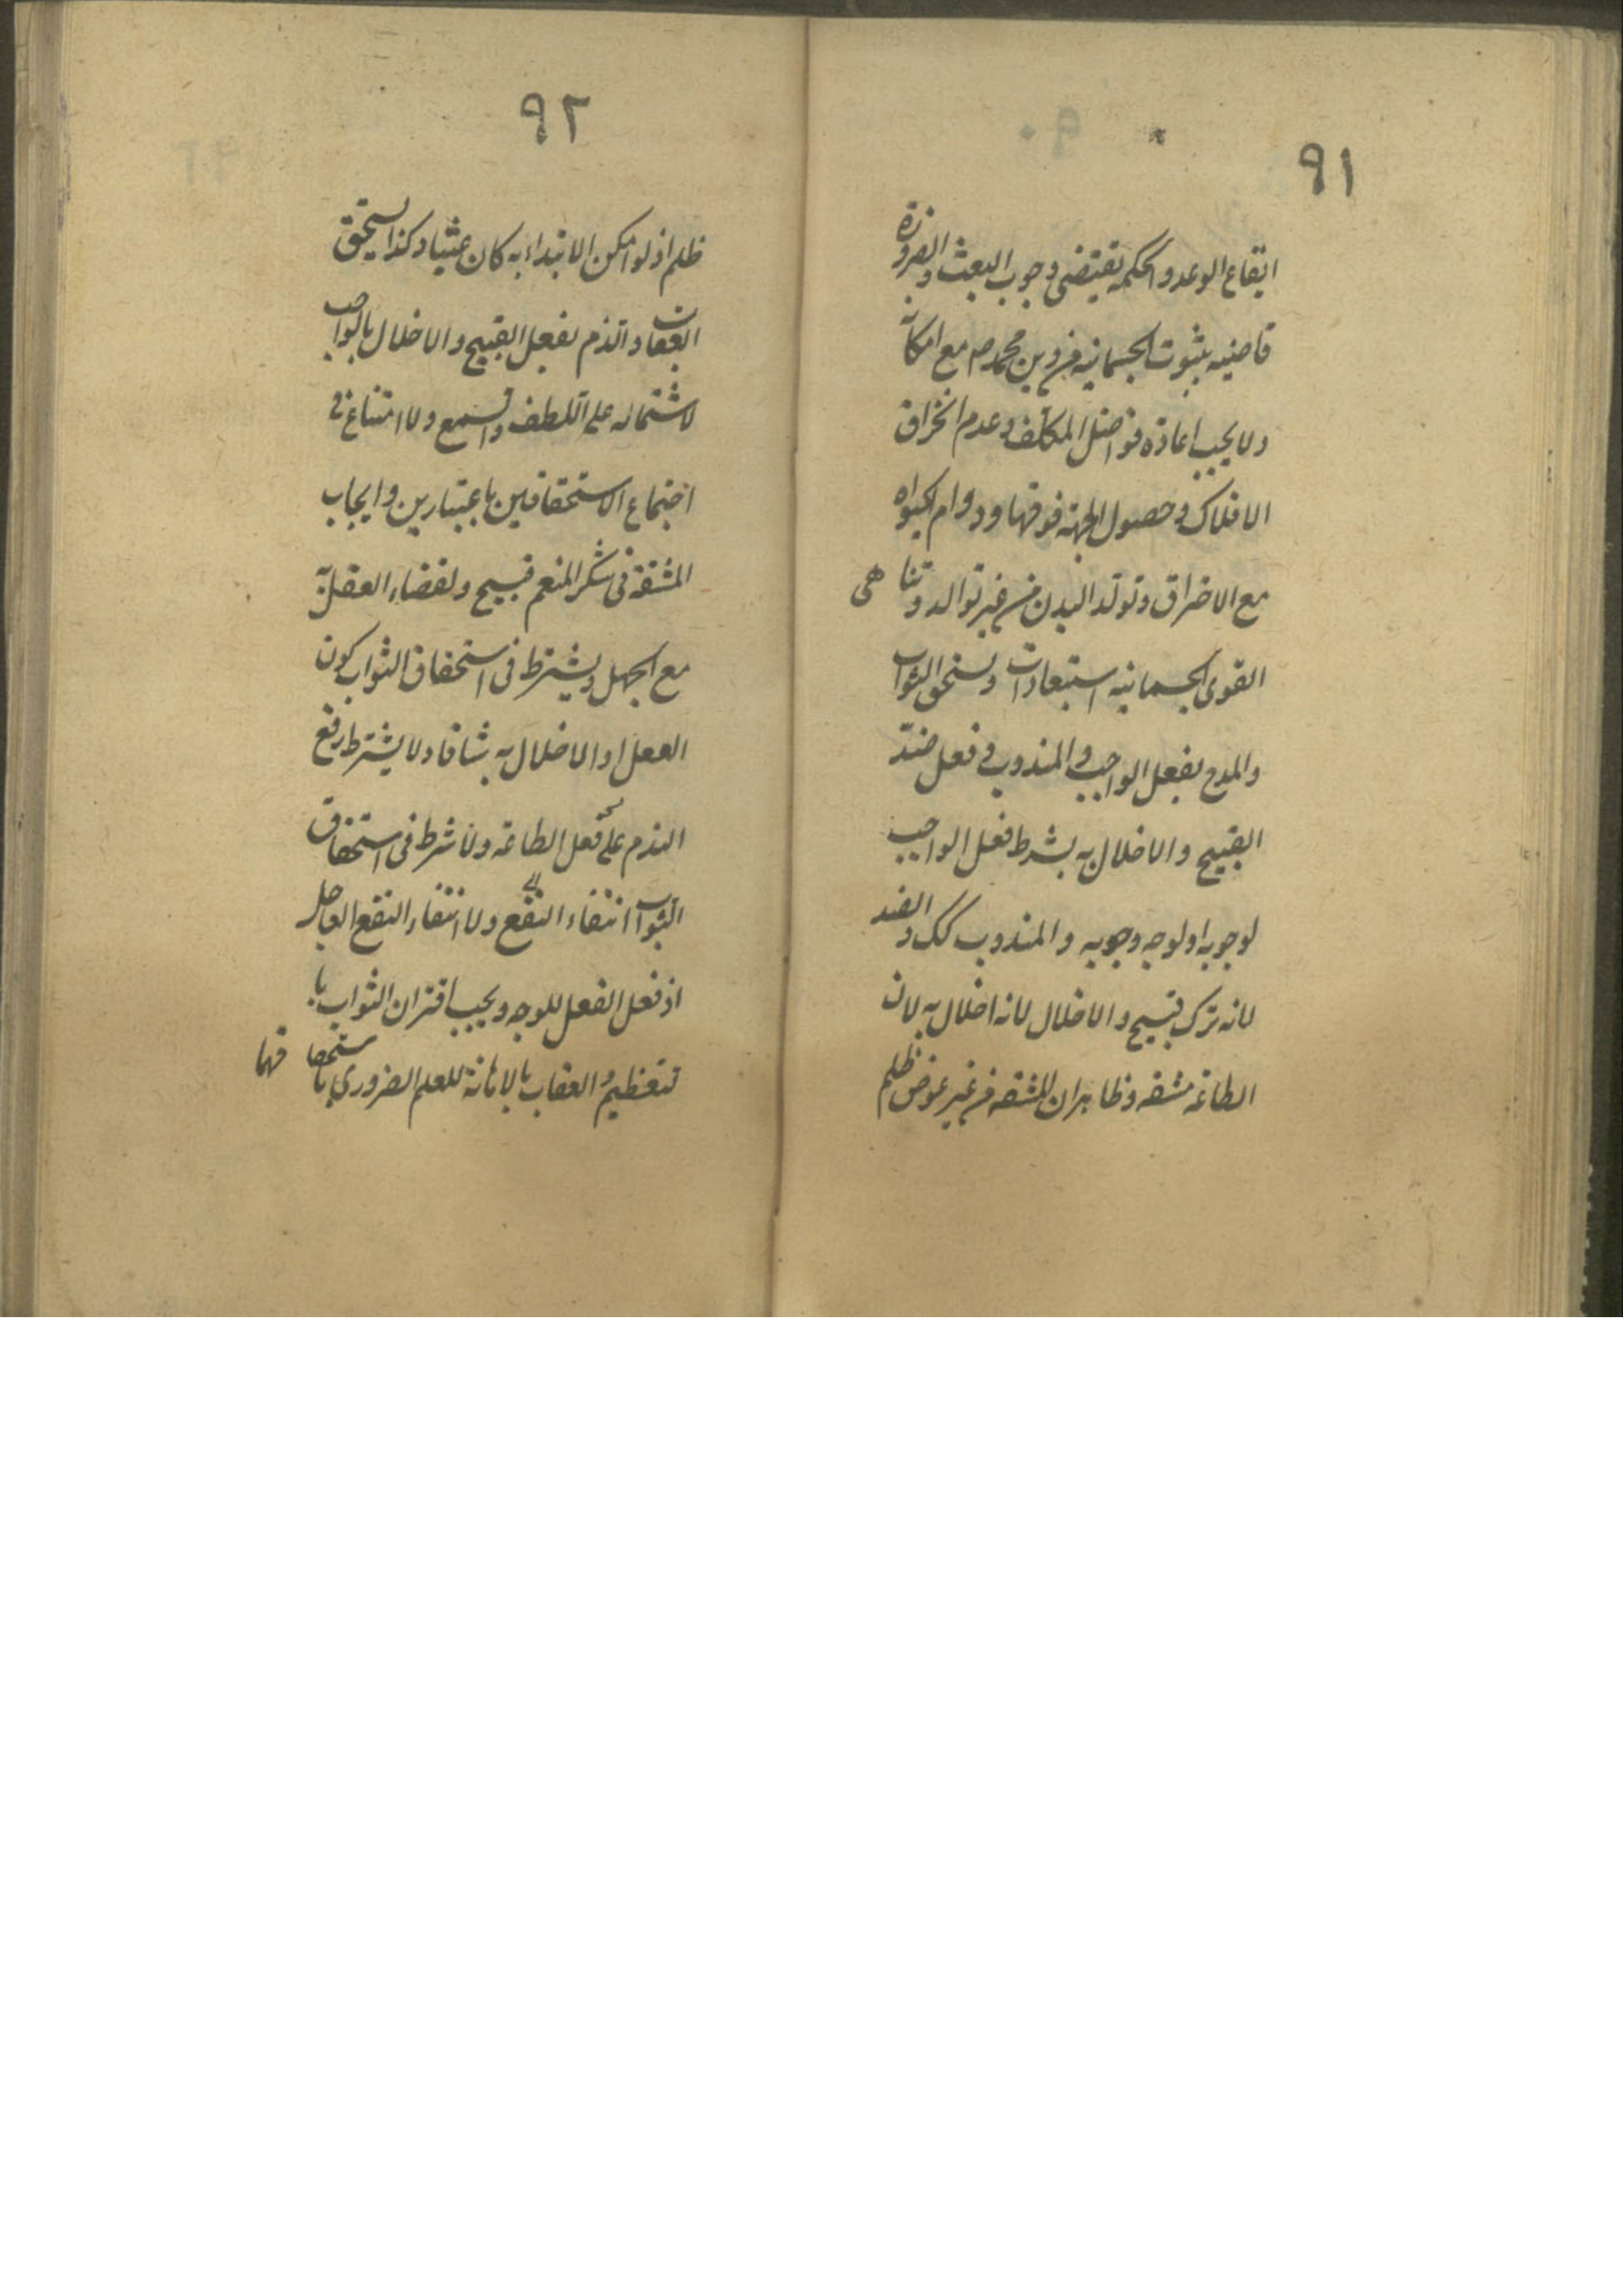 ٩١
ايقاع الوعد والحكمه تقيتضى وجوب البعث والضرورة
قاضيه بثبوت الجسمانيه من دين محمد ص مع امكانه
ولا يجب اعادة فواضل المكلف وعدم انخراق
الافلاك وحصول الجنة فوقها ودوام الحيواه
مع الاحتراق وتولد البدن من غير توالد وتناهى
القوى الجسمانيه استبعادات ويستحق الثواب
والمدح بفعل الواجب والمندوب وفعل ضد
القبيح والاخلال به بشرط فعل الواجب
لوجوبه او لوجه وجوبه والمندوب كك والضد
لانه ترك قبيح والاخلال لانه اخلال به لان
الطاعة مشقه وظاهر ان المشقه من غير عوض ظلم
٩٢
ظلم اذ لو امكن الابتداء به كان عبثا وكذا يستحق
العقاب والذم بفعل القبيح والاخلال بالواجب
لاشتماله على اللطف والسمع ولا امتناع فى
اجتماع الاستحقاقين باعتبارين وايجاب
المشقة فى شكر المنعم قبيح ولقضاء العقل به
مع الجهل ويشترط فى استحقاق الثواب كون
الفعل او الاخلال به شاقا ولا يشترط رفع
الندم على فعل الطاعة ولا شرط فى استحقاق
الثواب انتفاء النفع ولا انتفاء النفع العاجل
اذ فعل الفعل للوجه ويجب اقتران الثواب با
لتعظيم والعقاب بالاهانة للعلم الضروري باستحقاقهما